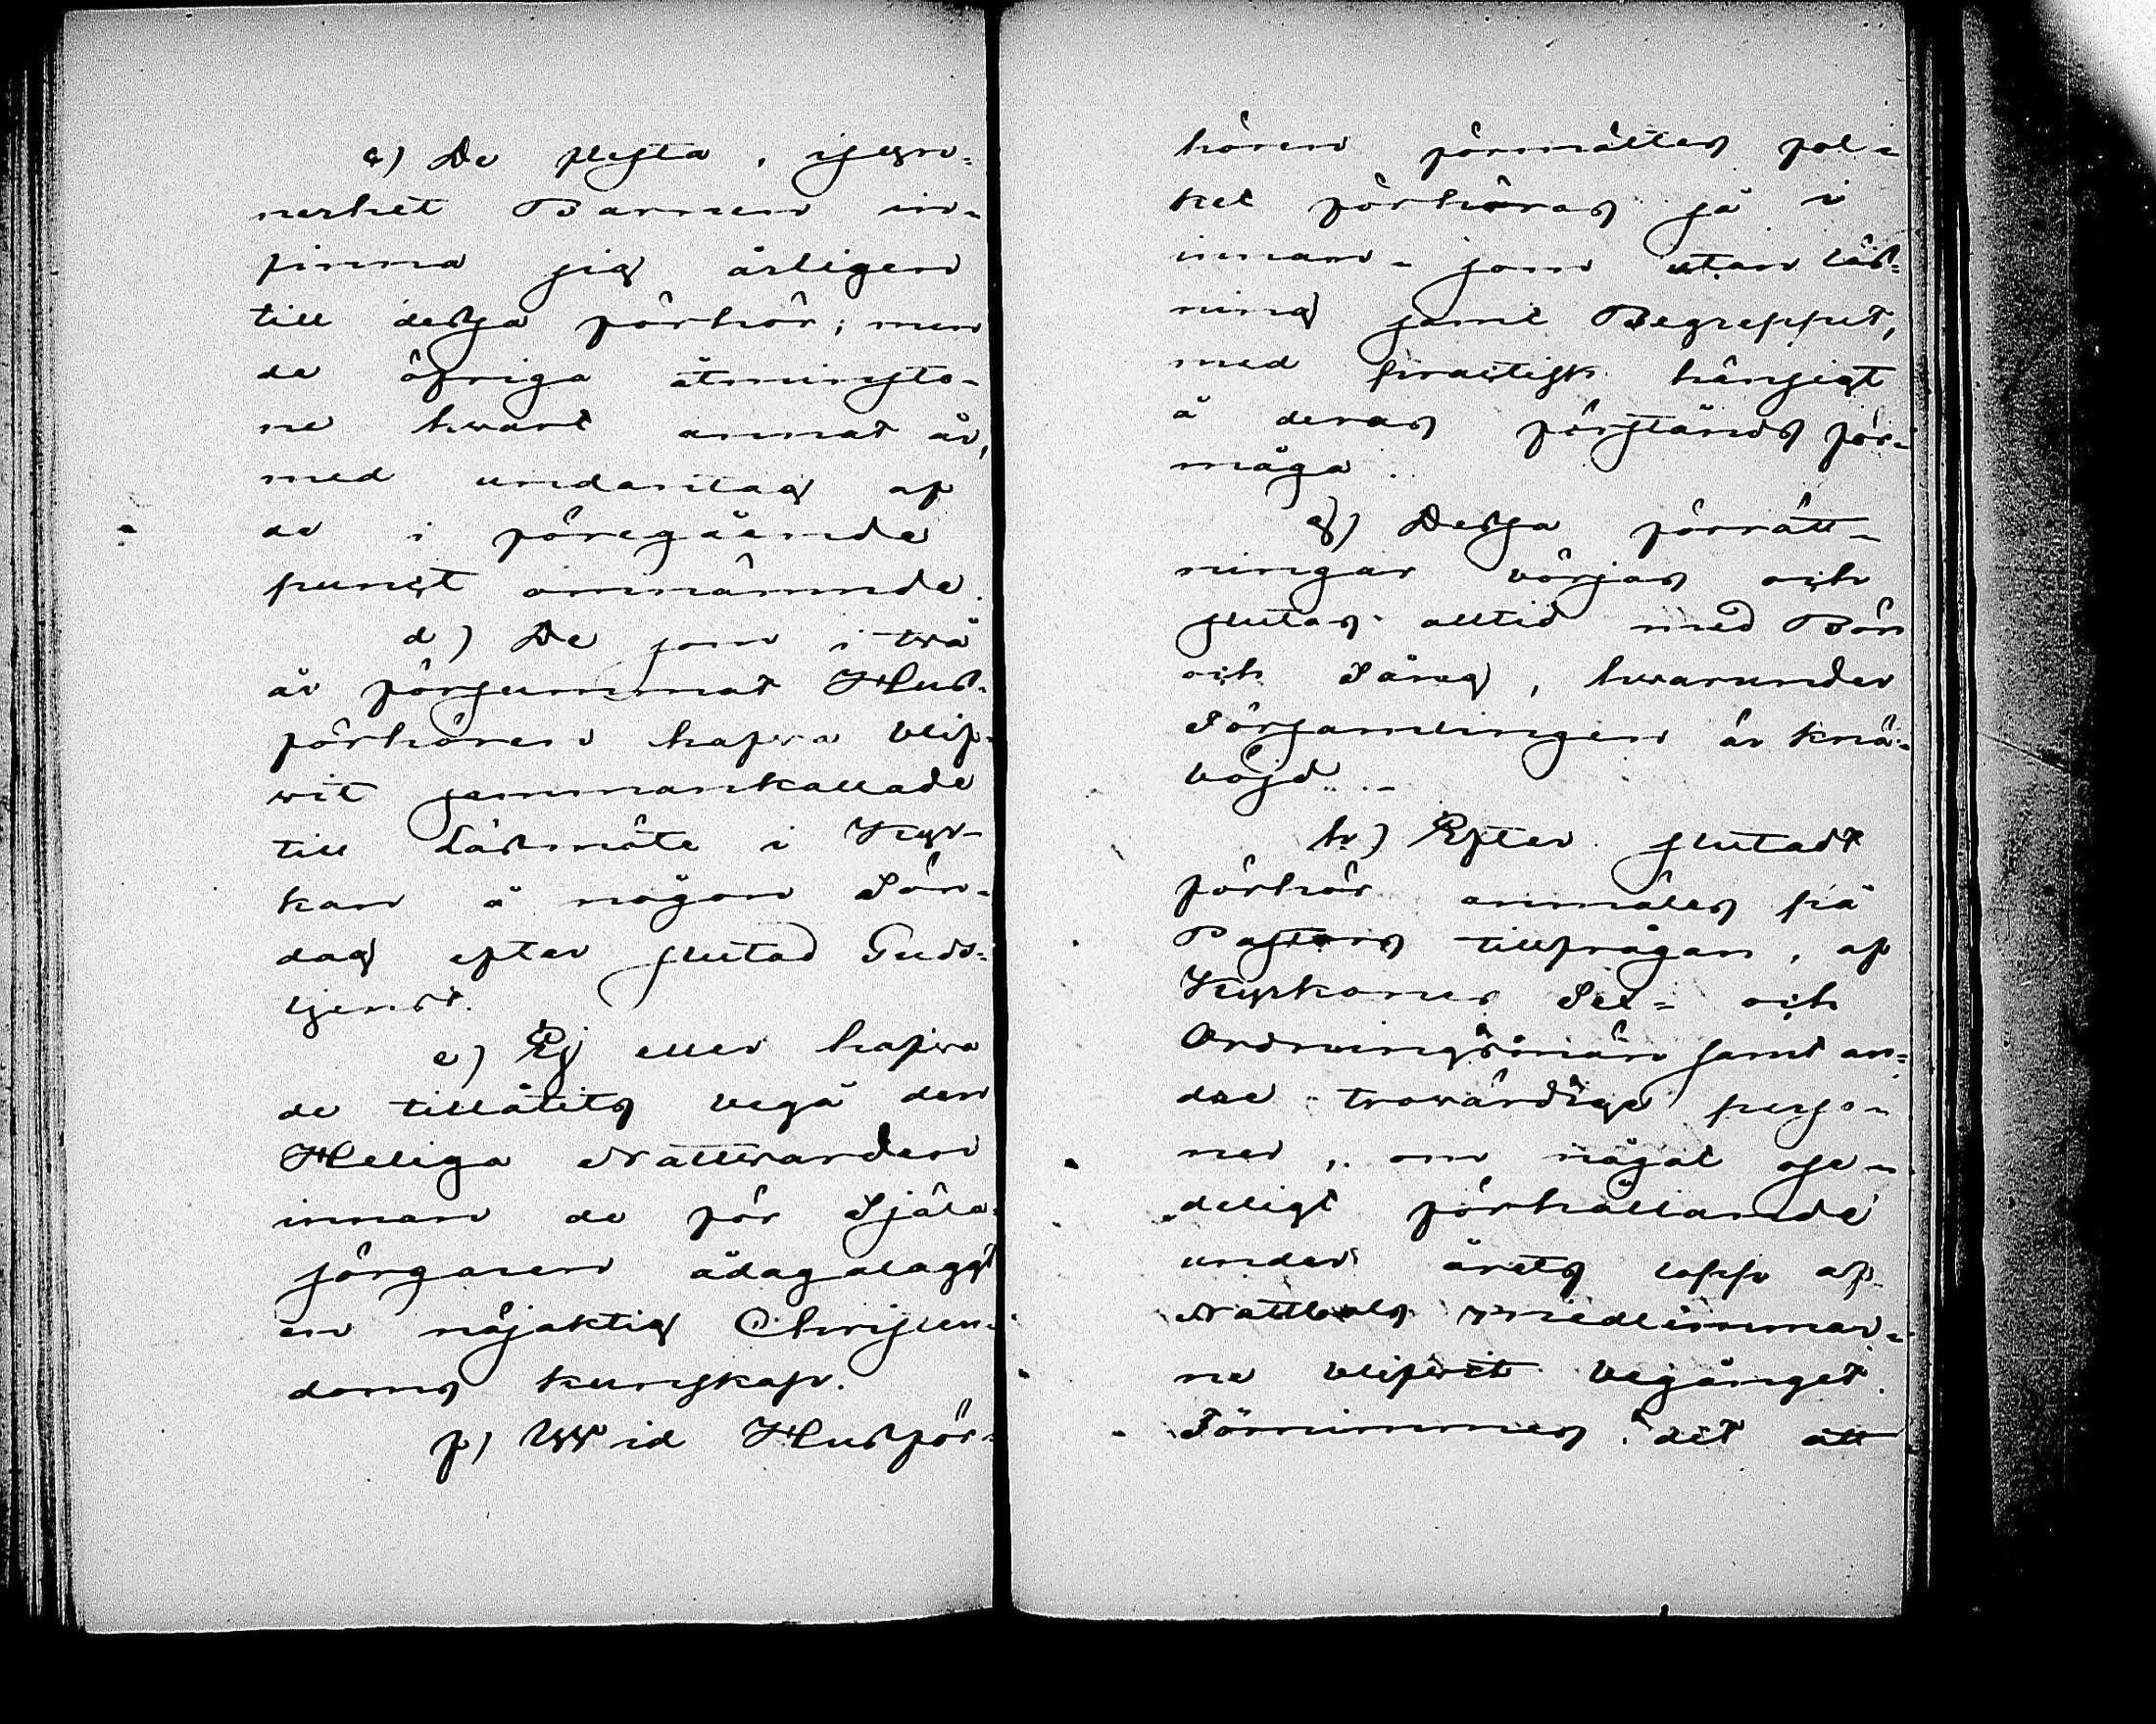 c) De flesta, isyn-
nerhet Barnen in-
finna sig årligen
till dessa förhör; men
de öfriga åtminsto-
ne hvart annat år,
med undantag af
de i föregående
punct omnämnde.
d) De som i två
år försummat Hus-
förhören hafva blif-
vit sammankallade
till Läsmöte i Kyr-
kan å någon Sön-
dag efter slutad Guds-
tjenst.
e) Ej eller hafva
de tillåtits begå den
Heliga Nattvarden
innan de för Själa-
sörgaren ådagalaggt
en nöjaktig Christen-
doms kunskap.
f) Wid Husför-
hören förmältes fol-
ket förhöras så i
innan- som utan läs-
ning samt Begreppet,
med practisk hänsigt
å deras förstånds för-
måga.
g) Dessa förrätt-
ningar börjas och
slutas alltid med Bön
och Sång, hvarunder
Församlingen är knä-
böjd.
h) Efter slutadt
förhör anmäles på
Pastors tillfrågan, af
Kyrkones Sex- och
Ordningsmän samt an-
dre trovärdige perso-
ner, om något ose-
deligt förhållande
under årets lopp af
Nattbols medlemmar-
ne blifvit begånget.
Förnimmes det att